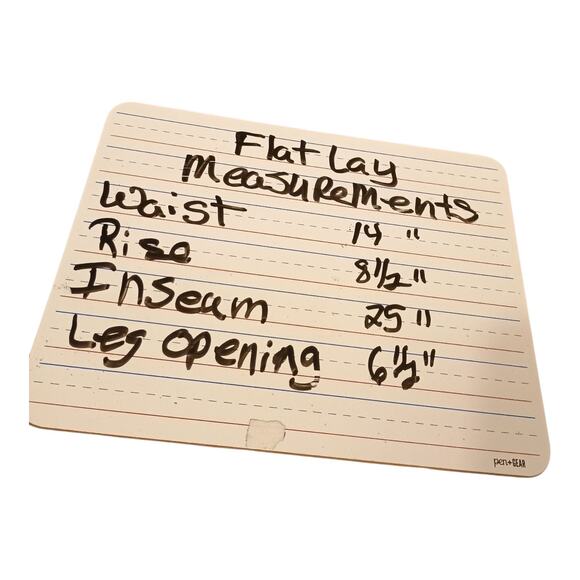 Flat Lay
Measurements
Waist 14 "
Rise 8 1/2 "
Inseam 25 "
Leg opening 6 1/2 "
pen+GEAR